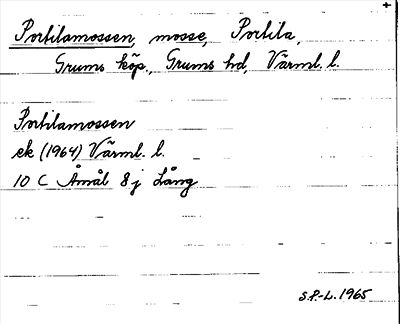 Portilamossen, mosse, Portila,
Grums köp., Grums hd, Värml. l.
Portilamossen
ek (1964) Värml. l.
10 C Åmål 8 j Lång
S.P.-L. 1965